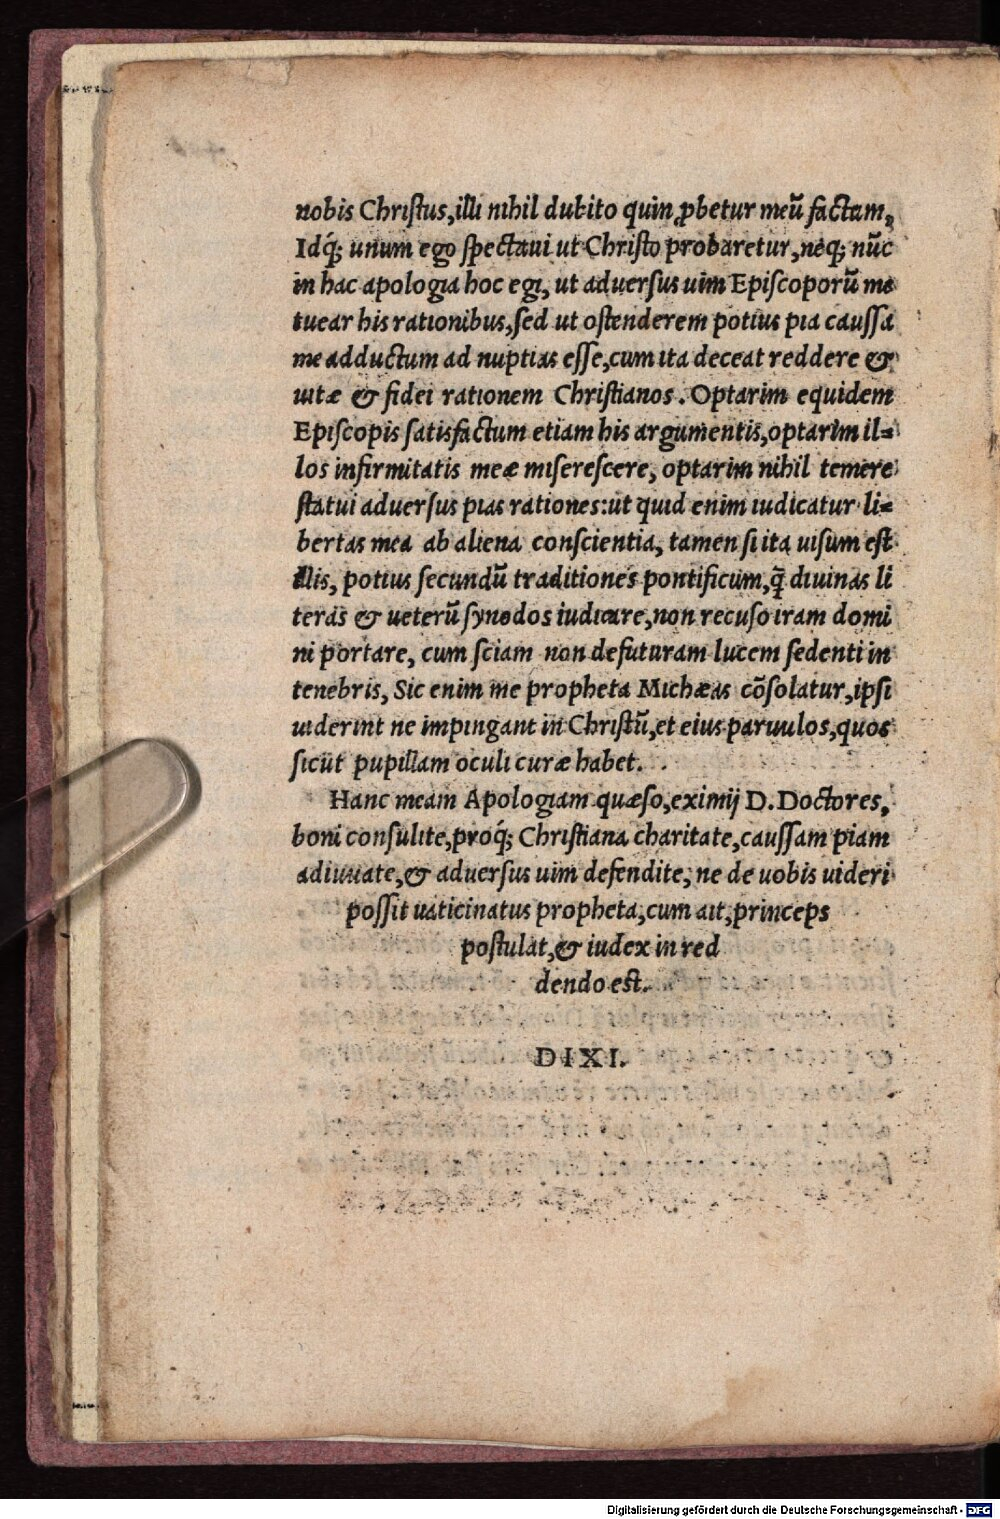 nobis Christus, illi nihil dubito quin ꝓbetur meũ factum,
Idq́; unum ego spectaui ut Christo probaretur, neq; nũc
in hac apologia hoc egi, ut aduersus uim Episcoporũ me
tuear his rationibus, sed ut ostenderem potius pia caussa
me adductum ad nuptias esse, cum ita deceat reddere &
uitæ & fidei rationem Christianos. Optarim equidem
Episcopis satisfactum etiam his argumentis, optarim il=
los infirmitatis meæ miserescere, optarim nihil temere
statui aduersus pias rationes: ut quid enim iudicatur li=
bertas mea ab aliena conscientia, tamen si ita uisum est
illis, potius secundũ traditiones pontificum, q̃ diuinas li
teras & ueterũ synodos iudicare, non recuso iram domi
ni portare, cum sciam non defuturam lucem sedenti in
tenebris, Sic enim me propheta Michæas cõsolatur, ipsi
uiderint ne impingant in Christũ, et eius paruulos, quos
sicut pupillam oculi curæ habet.
Hanc meam Apologiam quæso, eximij D. Doctores,
boni consulite, proq́; Christiana charitate, caussam piam
adiuuate, & aduersus uim defendite, ne de uobis uideri
possit uaticinatus propheta, cum ait, princeps
postulat, & iudex in red
dendo est.
DIXI.
Digitalisierung gefördert durch die Deutsche Forschungsgemeinschaft - DFG